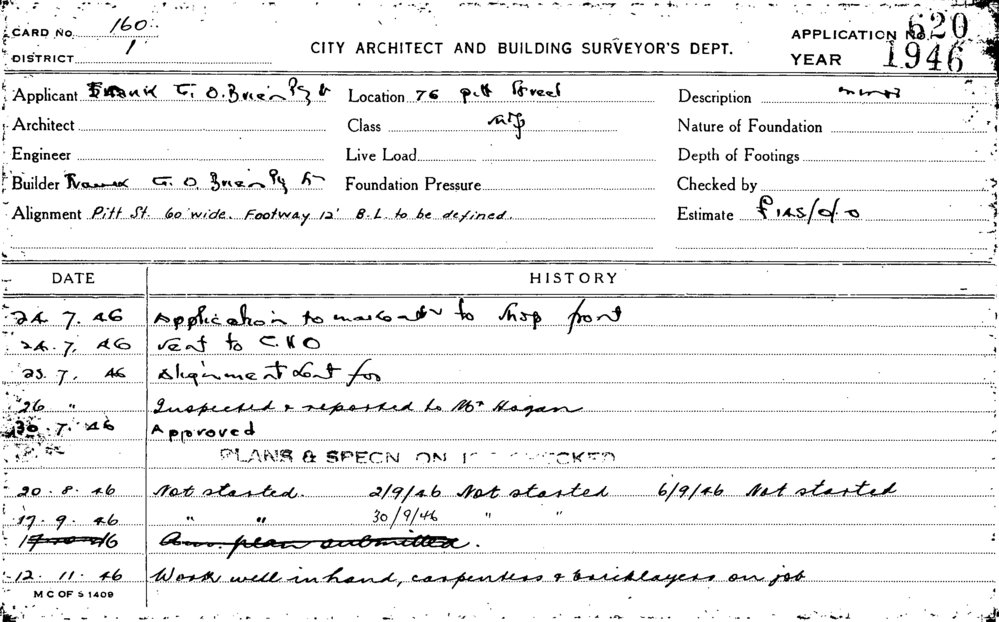 CARD No. 160
APPLICATION No. 620
DISTRICT 1
CITY ARCHITECT AND BUILDING SURVEYOR'S DEPT.
YEAR 1946
Applicant Frank G. O.Brien Pty Location 76 Pitt Street Description
Architect Class Nature of Foundation
Engineer Live Load Depth of Footings
Builder Frank G. O. Brien Pty Foundation Pressure Checked by
Alignment Pitt St. 60' wide. Footway 12' B.L. to be defined. Estimate
DATE HISTORY
24. 7. 46 Application to to shop front
24. 7. 46 Sent to C.
25. 7. 46 Alignment Sent for
26 " Inspected & reported to Mr Hogan
30. 7. 46 Approved
PLANS & SPECN ON CHECKED
20. 8. 46 Not started. 2/9/46 Not started 6/9/46 Not started
17. 9. 46 " " 30/9/46 " "
plan submitted.
12. 11. 46 Work well in hand, carpenters & bricklayers on job
M C OF S 1409